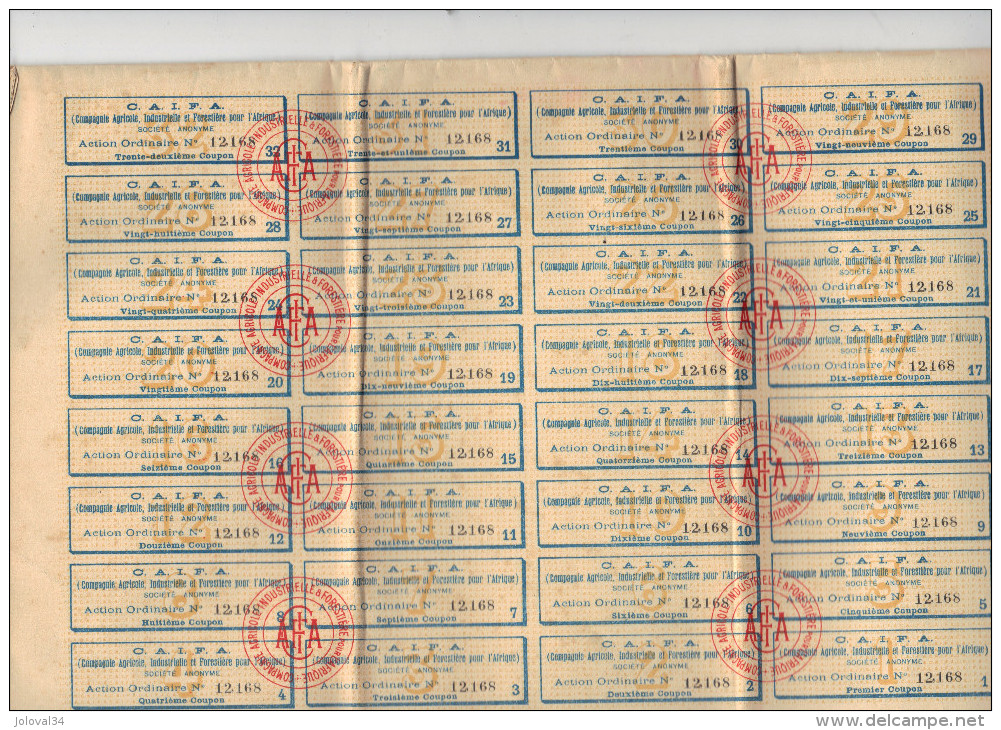 C. A. I. F. A.
(Compagnie Agricole, Industrielle et Forestière pour l'Afrique)
SOCIÉTÉ ANONYME
Action Ordinaire N° 12.168
Trente-deuxième Coupon 32
C. A. I. F. A.
(Compagnie Agricole, Industrielle et Forestière pour l'Afrique)
SOCIÉTÉ ANONYME
Action Ordinaire N° 12.168
Trente-et-unième Coupon 31
C. A. I. F. A.
(Compagnie Agricole, Industrielle et Forestière pour l'Afrique)
SOCIÉTÉ ANONYME
Action Ordinaire N° 12.168
Trentième Coupon 30
C. A. I. F. A.
(Compagnie Agricole, Industrielle et Forestière pour l'Afrique)
SOCIÉTÉ ANONYME
Action Ordinaire N° 12.168
Vingt-neuvième Coupon 29
C. A. I. F. A.
(Compagnie Agricole, Industrielle et Forestière pour l'Afrique)
SOCIÉTÉ ANONYME
Action Ordinaire N° 12.168
Vingt-huitième Coupon 28
C. A. I. F. A.
(Compagnie Agricole, Industrielle et Forestière pour l'Afrique)
SOCIÉTÉ ANONYME
Action Ordinaire N° 12.168
Vingt-septième Coupon 27
C. A. I. F. A.
(Compagnie Agricole, Industrielle et Forestière pour l'Afrique)
SOCIÉTÉ ANONYME
Action Ordinaire N° 12.168
Vingt-sixième Coupon 26
C. A. I. F. A.
(Compagnie Agricole, Industrielle et Forestière pour l'Afrique)
SOCIÉTÉ ANONYME
Action Ordinaire N° 12.168
Vingt-cinquième Coupon 25
C. A. I. F. A.
(Compagnie Agricole, Industrielle et Forestière pour l'Afrique)
SOCIÉTÉ ANONYME
Action Ordinaire N° 12.168
Vingt-quatrième Coupon 24
C. A. I. F. A.
(Compagnie Agricole, Industrielle et Forestière pour l'Afrique)
SOCIÉTÉ ANONYME
Action Ordinaire N° 12.168
Vingt-troisième Coupon 23
C. A. I. F. A.
(Compagnie Agricole, Industrielle et Forestière pour l'Afrique)
SOCIÉTÉ ANONYME
Action Ordinaire N° 12.168
Vingt-deuxième Coupon 22
C. A. I. F. A.
(Compagnie Agricole, Industrielle et Forestière pour l'Afrique)
SOCIÉTÉ ANONYME
Action Ordinaire N° 12.168
Vingt-et-unième Coupon 21
C. A. I. F. A.
(Compagnie Agricole, Industrielle et Forestière pour l'Afrique)
SOCIÉTÉ ANONYME
Action Ordinaire N° 12.168
Vingtième Coupon 20
C. A. I. F. A.
(Compagnie Agricole, Industrielle et Forestière pour l'Afrique)
SOCIÉTÉ ANONYME
Action Ordinaire N° 12.168
Dix-neuvième Coupon 19
C. A. I. F. A.
(Compagnie Agricole, Industrielle et Forestière pour l'Afrique)
SOCIÉTÉ ANONYME
Action Ordinaire N° 12.168
Dix-huitième Coupon 18
C. A. I. F. A.
(Compagnie Agricole, Industrielle et Forestière pour l'Afrique)
SOCIÉTÉ ANONYME
Action Ordinaire N° 12.168
Dix-septième Coupon 17
C. A. I. F. A.
(Compagnie Agricole, Industrielle et Forestière pour l'Afrique)
SOCIÉTÉ ANONYME
Action Ordinaire N° 12.168
Seizième Coupon 16
C. A. I. F. A.
(Compagnie Agricole, Industrielle et Forestière pour l'Afrique)
SOCIÉTÉ ANONYME
Action Ordinaire N° 12.168
Quinzième Coupon 15
C. A. I. F. A.
(Compagnie Agricole, Industrielle et Forestière pour l'Afrique)
SOCIÉTÉ ANONYME
Action Ordinaire N° 12.168
Quatorzième Coupon 14
C. A. I. F. A.
(Compagnie Agricole, Industrielle et Forestière pour l'Afrique)
SOCIÉTÉ ANONYME
Action Ordinaire N° 12.168
Treizième Coupon 13
C. A. I. F. A.
(Compagnie Agricole, Industrielle et Forestière pour l'Afrique)
SOCIÉTÉ ANONYME
Action Ordinaire N° 12.168
Douzième Coupon 12
C. A. I. F. A.
(Compagnie Agricole, Industrielle et Forestière pour l'Afrique)
SOCIÉTÉ ANONYME
Action Ordinaire N° 12.168
Onzième Coupon 11
C. A. I. F. A.
(Compagnie Agricole, Industrielle et Forestière pour l'Afrique)
SOCIÉTÉ ANONYME
Action Ordinaire N° 12.168
Dixième Coupon 10
C. A. I. F. A.
(Compagnie Agricole, Industrielle et Forestière pour l'Afrique)
SOCIÉTÉ ANONYME
Action Ordinaire N° 12.168
Neuvième Coupon 9
C. A. I. F. A.
(Compagnie Agricole, Industrielle et Forestière pour l'Afrique)
SOCIÉTÉ ANONYME
Action Ordinaire N° 12.168
Huitième Coupon 8
C. A. I. F. A.
(Compagnie Agricole, Industrielle et Forestière pour l'Afrique)
SOCIÉTÉ ANONYME
Action Ordinaire N° 12.168
Septième Coupon 7
C. A. I. F. A.
(Compagnie Agricole, Industrielle et Forestière pour l'Afrique)
SOCIÉTÉ ANONYME
Action Ordinaire N° 12.168
Sixième Coupon 6
C. A. I. F. A.
(Compagnie Agricole, Industrielle et Forestière pour l'Afrique)
SOCIÉTÉ ANONYME
Action Ordinaire N° 12.168
Cinquième Coupon 5
C. A. I. F. A.
(Compagnie Agricole, Industrielle et Forestière pour l'Afrique)
SOCIÉTÉ ANONYME
Action Ordinaire N° 12.168
Quatrième Coupon 4
C. A. I. F. A.
(Compagnie Agricole, Industrielle et Forestière pour l'Afrique)
SOCIÉTÉ ANONYME
Action Ordinaire N° 12.168
Troisième Coupon 3
C. A. I. F. A.
(Compagnie Agricole, Industrielle et Forestière pour l'Afrique)
SOCIÉTÉ ANONYME
Action Ordinaire N° 12.168
Deuxième Coupon 2
C. A. I. F. A.
(Compagnie Agricole, Industrielle et Forestière pour l'Afrique)
SOCIÉTÉ ANONYME
Action Ordinaire N° 12.168
Premier Coupon 1
COMPAGNIE AGRICOLE INDUSTRIELLE & FORESTIÈRE POUR L'AFRIQUE
joloval34
delcampe.net